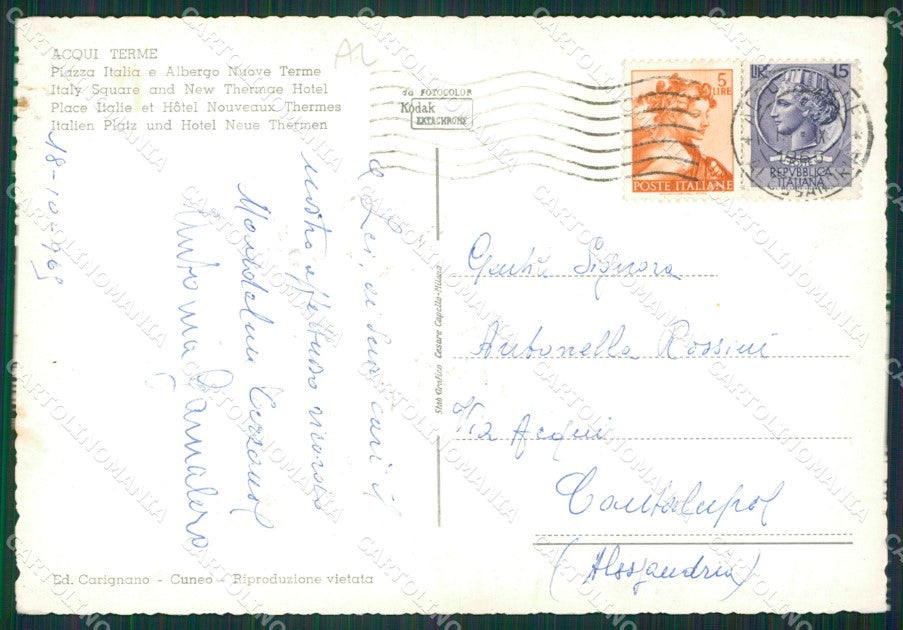 ACQUI TERME
Piazza Italia e Albergo Nuove Terme
Italy Square and New Thermae Hotel
Place Italie et Hôtel Nouveaux Thermes
Italien Platz und Hotel Neue Thermen
AL
da FOTOCOLOR
Kodak
EKTACHROME
5
LIRE
POSTE ITALIANE
LIRE 15
REPVBBLICA
ITALIANA
1963
18-10-963
a Lei, ai suoi cari il
nostro affettuoso ricordo
Maddalena
Antonia Gamalero
Stab. Grafico Cesare Capello-Milano
Gent. Signora
Antonella Rossini
Via Acqui
Cantalupo
(Alessandria)
Ed. Carignano - Cuneo - Riproduzione vietata
CARTOLINOMANIA